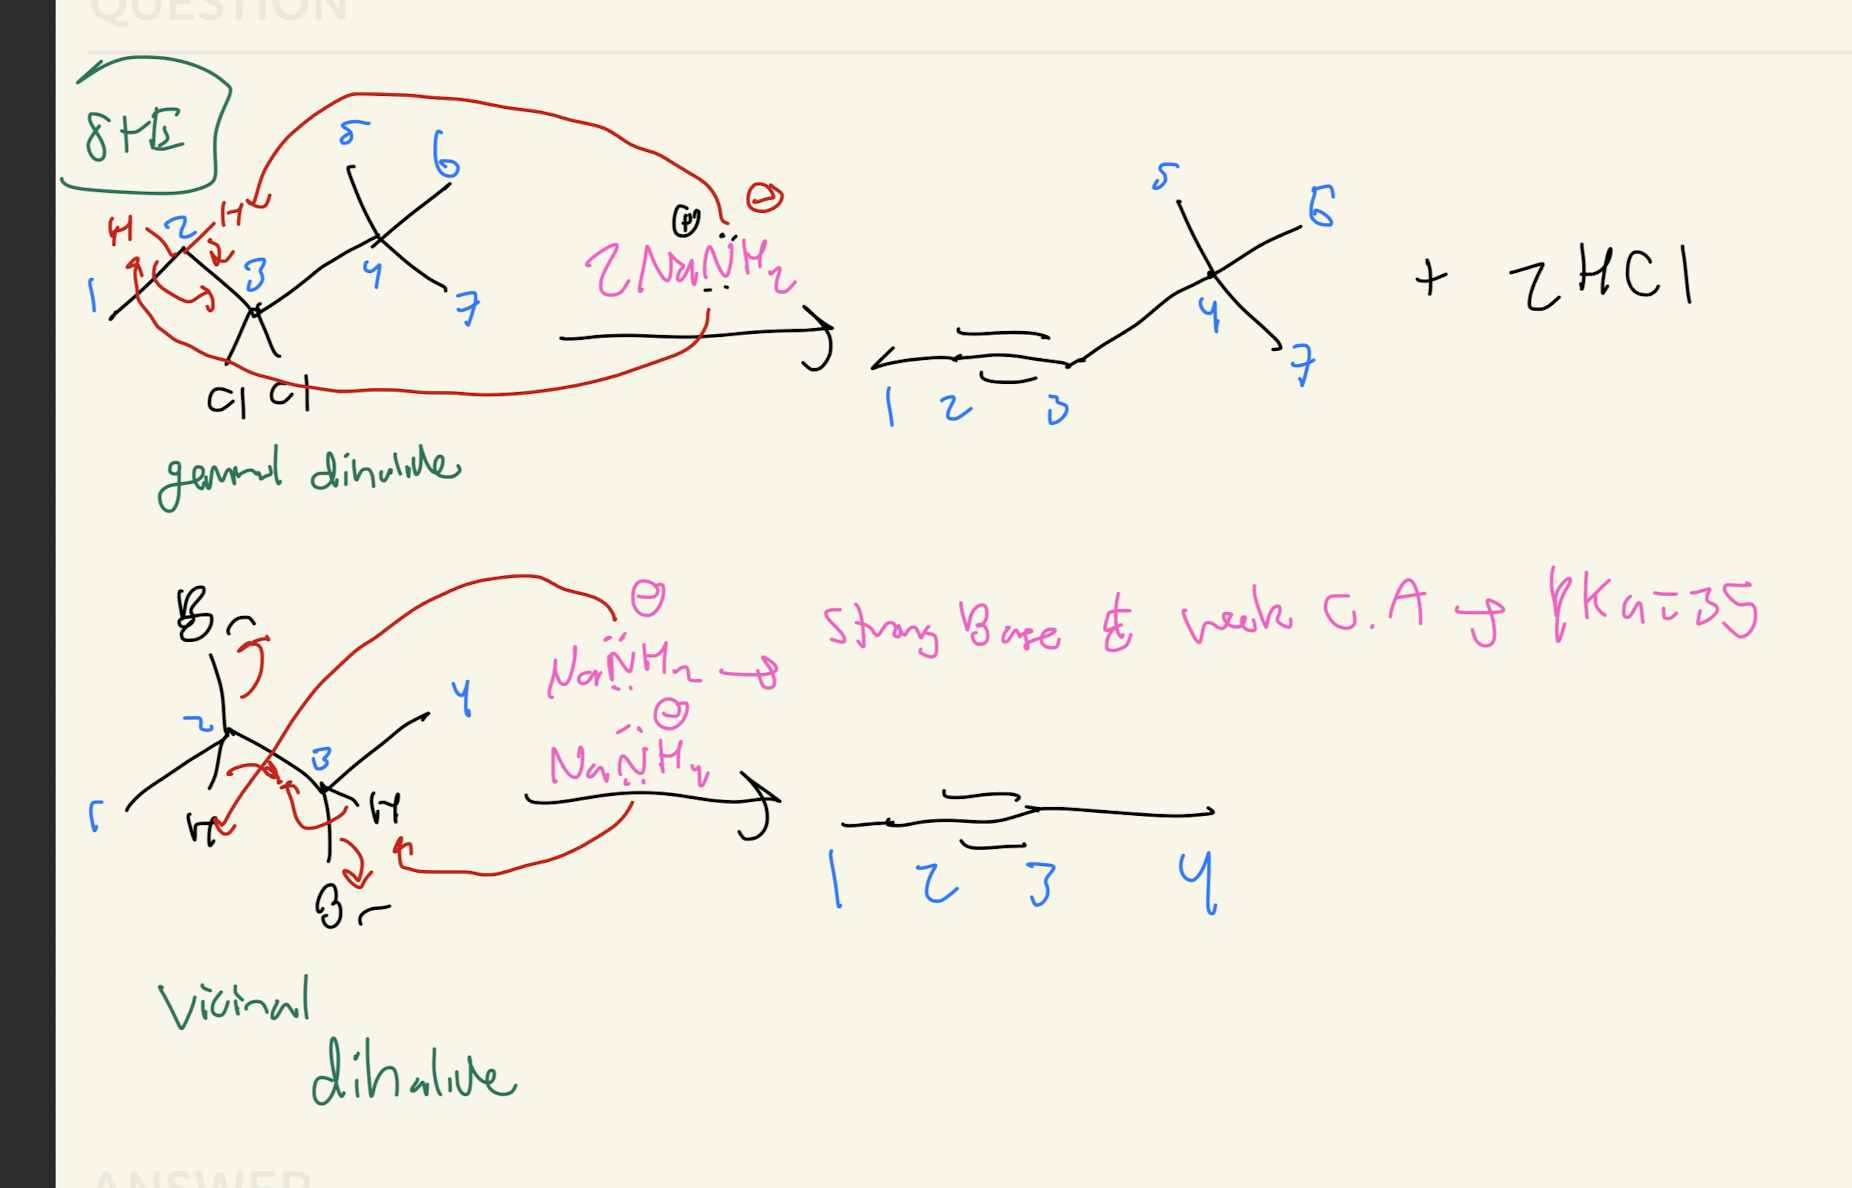 QUESTION
8HE
5 6
H 2 H
1 3 4 7
Cl Cl
2NaNH2
⊕ ⊖
5 6
4 7
1 2 3
+ 2HCl
dihalide
Br
2 3 4
H H
Br
⊖
NaNH2 → Strong Base & weak C.A → pKa=35
⊖
NaNH2
1 2 3 4
Vicinal
dihalide
ANSWER